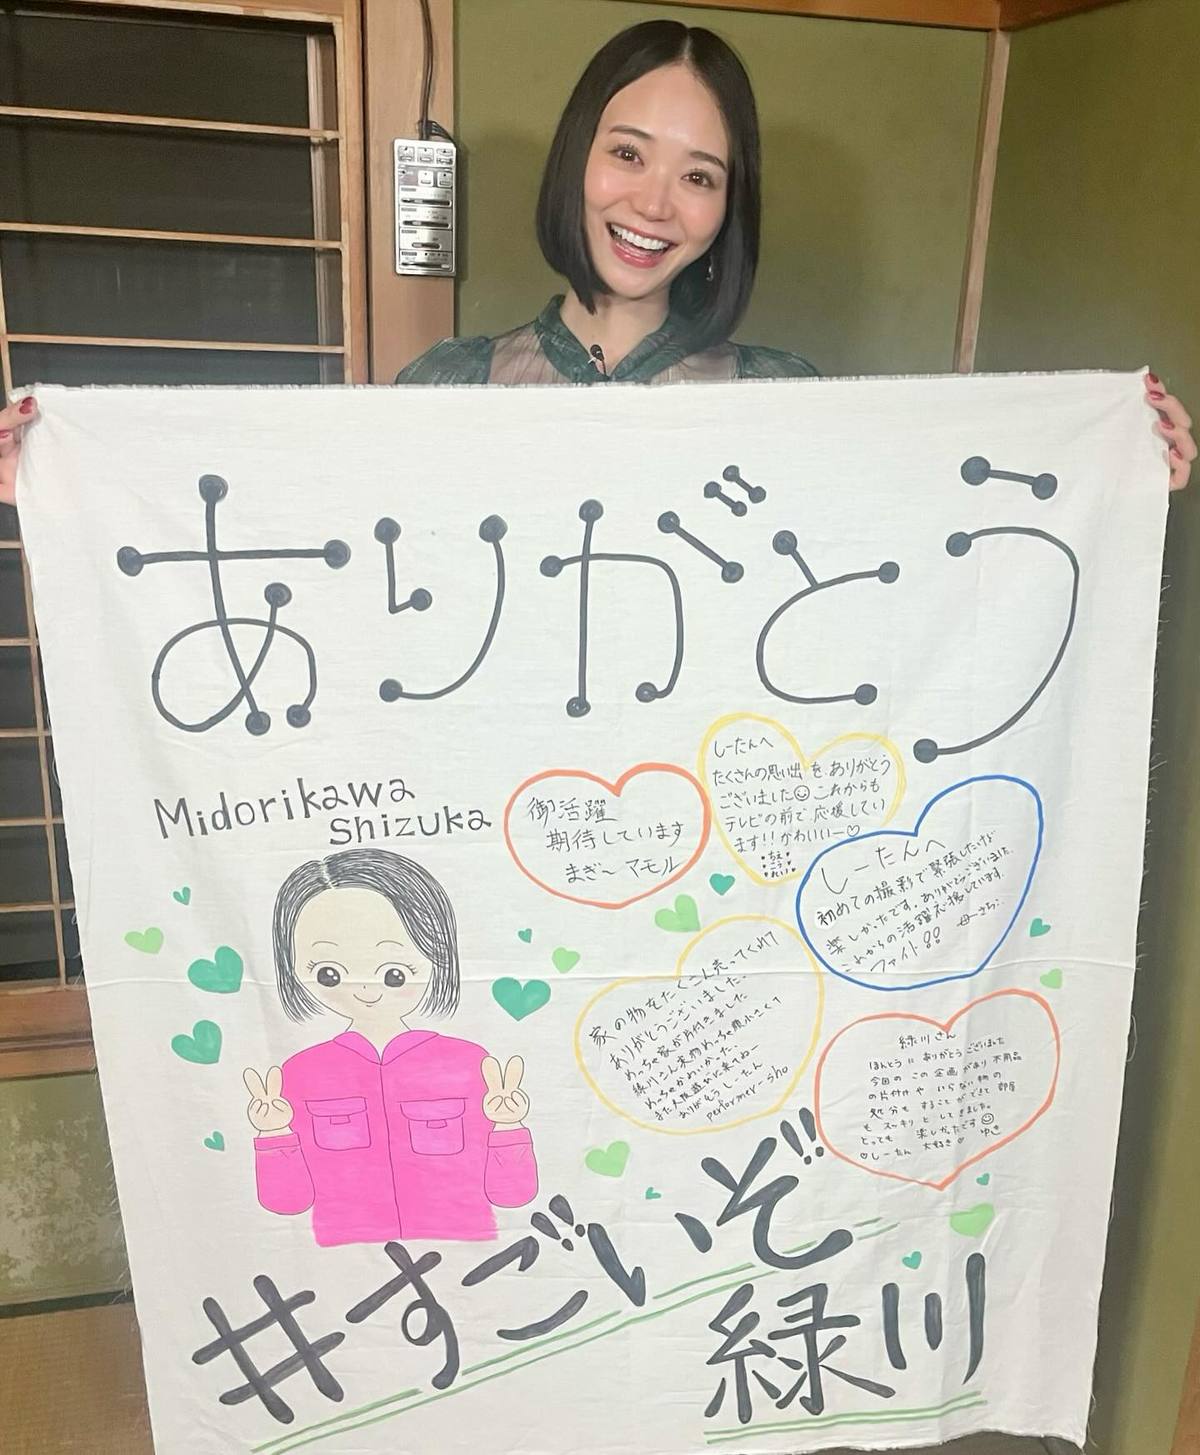 ありがとう
Midorikawa
Shizuka
御活躍
期待しています
まぎ〜 マモル
しーたんへ
たくさんの思い出を、ありがとう
ございました☺これからも
テレビの前で応援してい
ます!!かわいいー♡
しーたんへ
初めての撮影で緊張したけど
楽しかったです。ありがとうございました。
これからの活躍応援しています。
ファイト!!
家の物をたくさん売ってくれて
ありがとうございました
めっちゃ家が片付きました
緑川さん実物めっちゃ顔小さくて
めっちゃかわいかった
また大阪遊びに来てねー
ありがとうしーたん
performer-sho
緑川さん
ほんとうにありがとうございました
今回のこの企画があり不用品
の片付けやいらない物の
処分もすることができて部屋
もスッキリとしてきました。
とっても楽しかったです☺
♡しーたん 大好き♡ ゆき
#すごいぞ!!
緑川